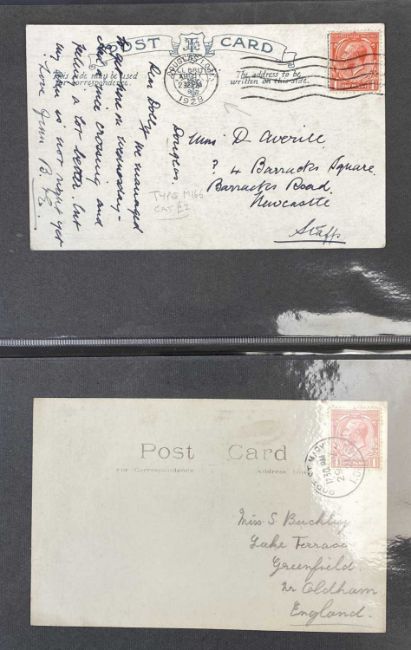 POST CARD
This side may be used
for correspondence.
The address to be
written on this side.
DOUGLAS I.O.M.
1929
Douglas.
Dear Dolly. We managed
to get here on Wednesday
nice crossing and
feeling a lot better. but
my is not right yet
Love from B.
TYPE M166
CAT £2
Miss D. Averill
? 4 Barracks Square
Barracks Road,
Newcastle
Staffs
Post Card
For Correspondence
Address
Miss S. Buckley
Lake Terrace
Greenfield.
Nr Oldham
England.